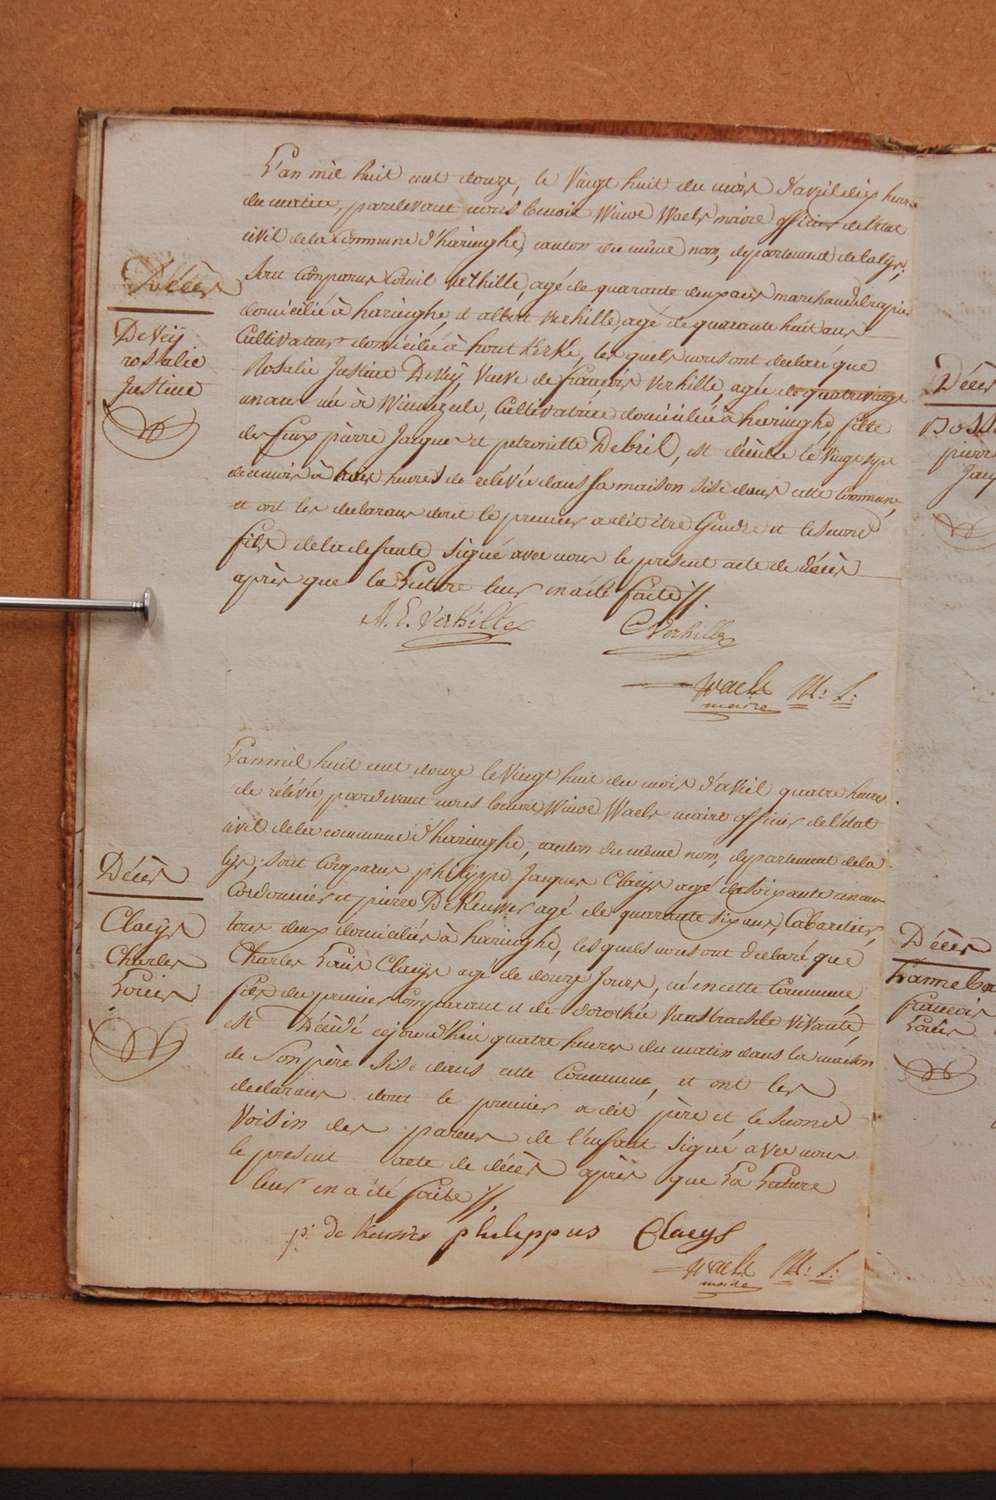 L'an mil huit cent douze, le vingt huit du mois d'avril dix heures
du matin, pardevant nous benoit Winoc Waels maire officier de l'état
civil de la Commune d'haringhe, canton du même nom, departement de la lys;
Sont Comparus Verhille, agé de quarante deux ans marchand
domicilié à haringhe et albert verhille, agé de quarante huit ans
Cultivateur domicilié à hont Kerke, lesquels nous ont declaré que
Rosalie Justine Deveij Veuve de françois verhille, agée de quatrevingt
un ans née à Winnezeele, Cultivatrice domiciliée à haringhe fille
de feux pierre Jacques et petronille Debril, est décédée le vingt sept
de ce mois à heures de rélévée dans sa maison Sise dans cette Commune,
et ont les declarans dont le premier a dit être Gendre et le second
fils de la defunte Signé avec nous le present acte de décès
après que la Lecture leur en a été faite //.
A. E. Verhille
C Verhille
Waels M: L:
maire
Décès
Deveij
rosalie
Justine
L'an mil huit cent douze le vingt huit du mois d'avril quatre heures
de rélévée, pardevant nous benoit Winoc Waels maire officier de l'état
civil de la commune d'haringhe, canton du même nom, departement de la
lys; sont Comparus philippe Jacques Claeys agé de soixante un ans
Cordonnier et pierre De Keuwer agé de quarante six ans, Cabaretier,
tous deux domiciliés à haringhe, lesquels nous ont declaré que
Charles Louis Claeys agé de douze Jours, né en cette Commune,
fils du premier Comparant et de dorothée Vanstraesele vivante,
est Décédé cejourd'hui quatre heures du matin dans la maison
de Son père Sise dans cette Commune, et ont les
declarans dont le premier a dit père et le second
Voisin des parens de l'enfant signé avec nous
le présent acte de décès après que La Lecture
leur en a été faite //.
p: de Keuwer philippus Claeys
Waels M: L:
maire
Décès
Claeys
Charles
Louis
Décès
pierre
Décès
francois
Louis